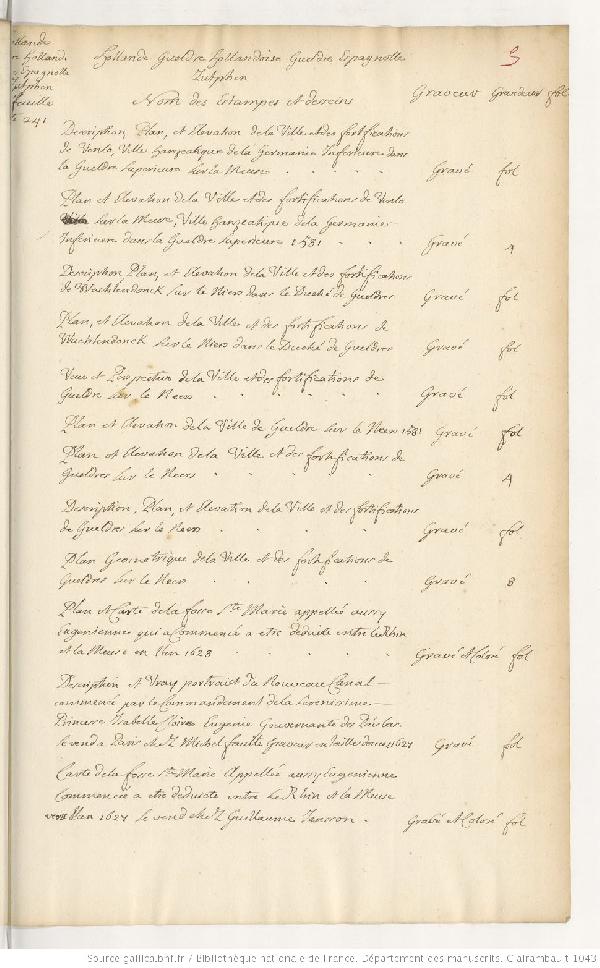 Hollande Gueldre Hollandoise Gueldre Espagnolle
Zutphen
5
Nom des Estampes et desseins Graveurs Grandeur fol
llande
e Hollande
Espagnolle
utphen
feuille
241
Description Plan, et Elevation de la Ville et des fortifications
de Venlo, Ville hanzeatique de la Germanie Inferieure dans
la Gueldre Superieure sur la Meuse . . . Gravé fol
Plan et Elevation de la Ville et des fortifications de Venlo
sur la Meuse, Ville hanzeatique de la Germanie
Inferieure dans la Gueldre Superieure 1581 . . . Gravé 4
Description Plan, et Elevation de la Ville et des fortifications
de Wachtendonck sur le Niers dans le Duché de Gueldres Gravé fol
Plan, et Elevation de la Ville et des fortifications de
Wachtendonck sur le Niers dans le Duché de Gueldres Gravé fol
Veue et Perspective de la Ville et des fortifications de
Gueldre sur le Neers . . . Gravé fol
Plan et Elevation de la Ville de Gueldre sur le Neers 1581 Gravé fol
Plan et Elevation de la Ville et des fortifications de
Gueldres sur le Neers . . . Gravé 4
Description, Plan, et Elevation de la Ville et des fortifications
de Gueldres sur le Neers . . . Gravé fol
Plan Geometrique de la Ville et des fortifications de
Gueldres sur le Neers . . . Gravé 8
Plan et Carte de la fosse Ste Marie appellée aussy
Eugenienne qui a Commencé a etre deduite entre le Rhin
et la Meuse en 1628 . . . Gravé et Coloré fol
Description et Vray portrait du Nouveau Canal
commencé par le Commandement de la Serenissime
Princesse Isabelle Claire Eugenie Gouvernante des
se vend a Paris chez Michel Graveur en taille douce 1627 Gravé fol
Carte de la fosse Ste Marie Appellée aussy Eugenienne
Commencée a etre deduite entre le Rhin et la Meuse
l'an 1627 se vend chez Guillaume . Gravé et Coloré fol
Source gallica.bnf.fr / Bibliothèque nationale de France. Département des manuscrits. Clairambault 1043